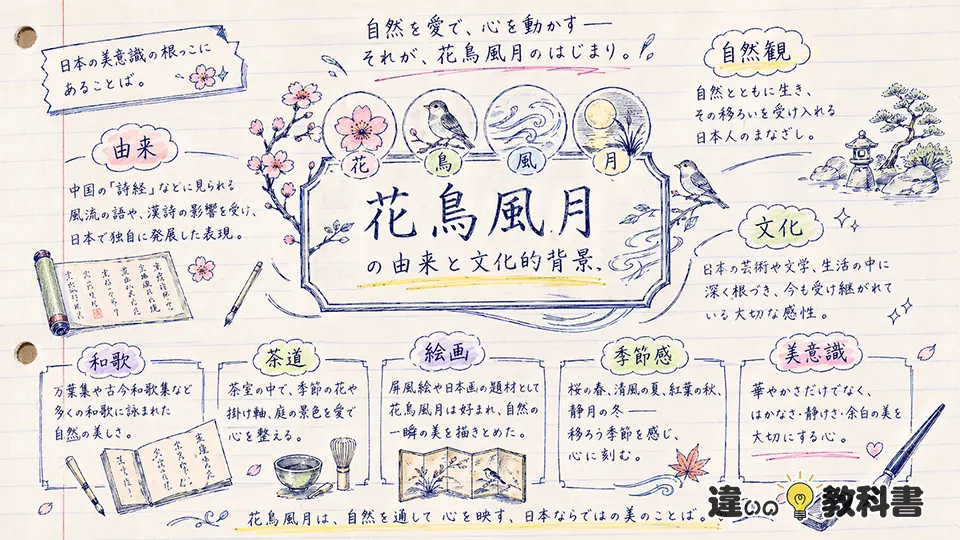 日本の美意識の根っこに
あることば。
自然を愛で、心を動かす──
それが、花鳥風月のはじまり。
自然観
自然とともに生き、
その移ろいを受け入れる
日本人のまなざし。
由来
中国の「詩経」などに見られる
風流の語や、漢詩の影響を受け、
日本で独自に発展した表現。
花
鳥
風
月
花鳥風月
の由来と文化的背景、
文化
日本の芸術や文学、生活の中に
深く根づき、今も受け継がれて
いる大切な感性。
和歌
万葉集や古今和歌集など
多くの和歌に詠まれた
自然の美しさ。
茶道
茶室の中で、季節の花や
掛け軸、庭の景色を愛で
心を整える。
絵画
屏風絵や日本画の題材として
花鳥風月は好まれ、自然の
一瞬の美を描きとめた。
季節感
桜の春、清風の夏、紅葉の秋、
静月の冬──
移ろう季節を感じ、
心に刻む。
美意識
華やかさだけでなく、
はかなさ・静けさ・余白の美を
大切にする心。
花鳥風月は、自然を通して 心を映す、日本ならではの美のことば。
違いの教科書